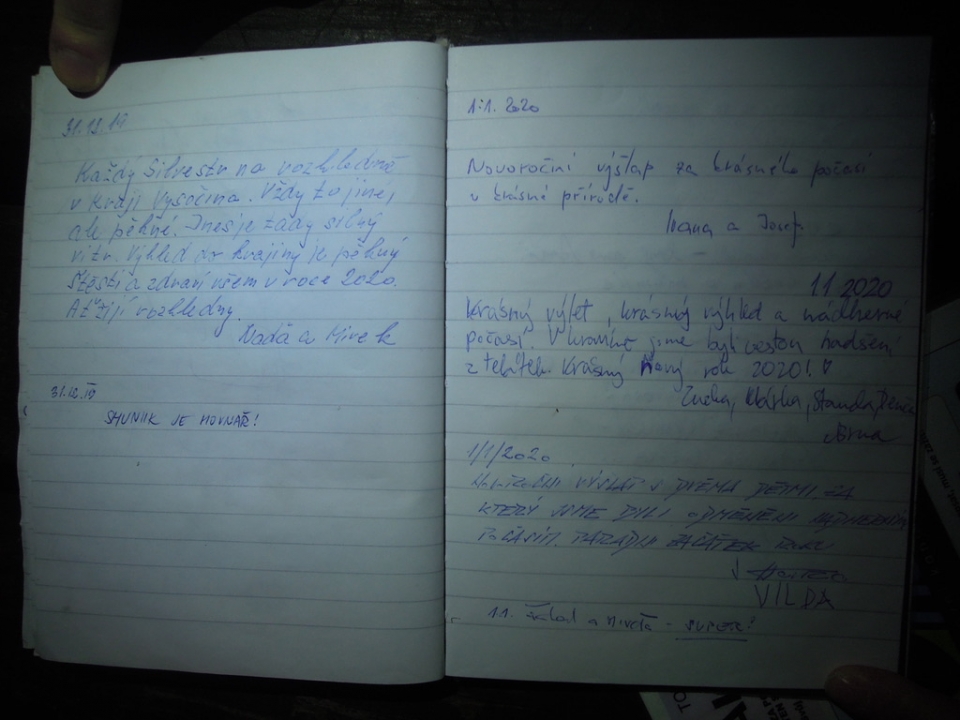 31.12.19
Každý Silvestr na rozhledně
v Kraji Vysočina. Vždy to jinej,
ale pěkné. Dnes je tady silný
vítr. Výhled do krajiny je pěkný
Štěstí a zdraví všem v roce 2020.
Ať žijí rozhledny.
Naďa a Mirek
31.12.19
SHUNIK JE HOVNAŘ!
1.1. 2020
Novoroční výšlap za krásného počasí
v krásné přírodě.
Ivana a Josef
1.1.2020
Krásný výlet, krásný výhled a nádherné
počasí. V jsme byli nadšení
z Krásný Nový rok 2020!
Standa,
1/1/2020
VÝŠLAP S DVĚMA DĚTMI ZA
KTERÝ JSME BYLI ODMĚNĚNI NÁDHERNÝM
POČASÍM. PARÁDNÍ ZAČÁTEK ROKU
VILDA
1.1. a - SUPER!